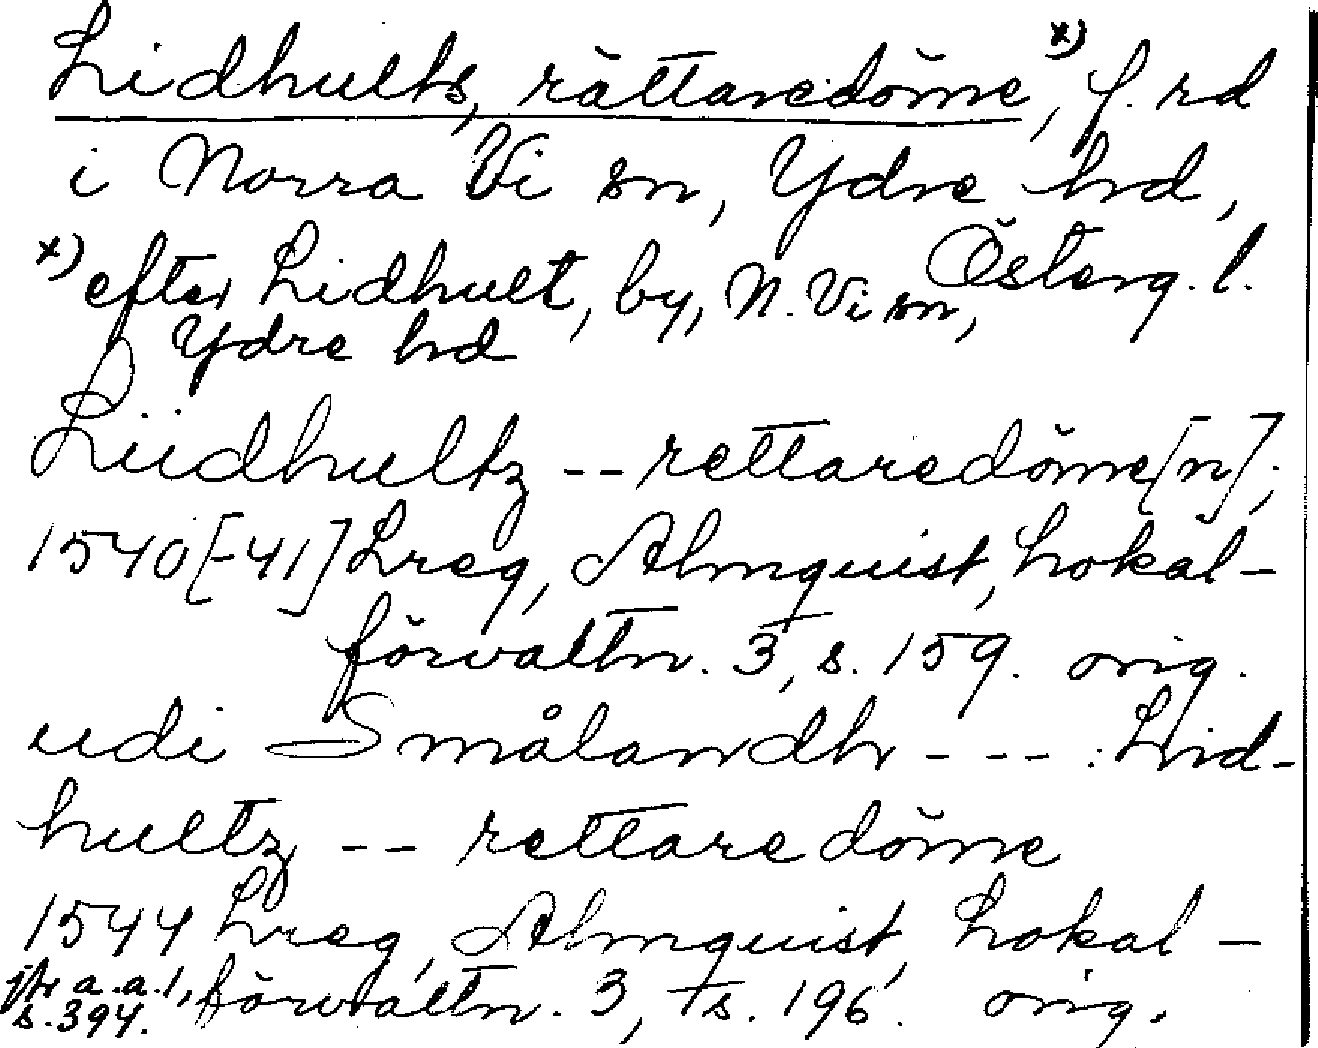 Lidhults, rättaredöme, x) f. rd
i Norra Vi sn, Ydre hd,
Österg. l.
x) efter Lidhult, by, N. Vi sn,
Ydre hd
Liidhultz -- rettaredöme[n];
1540[-41] Lreg, Almquist, Lokal-
förvaltn. 3, s. 159. orig.
udi Smålandh --- : Liid-
hultz -- rettaredöme
1544 Lreg, Almquist, Lokal-
förvaltn. 3, s. 196. orig.
jfr a.a. 1,
s. 394.